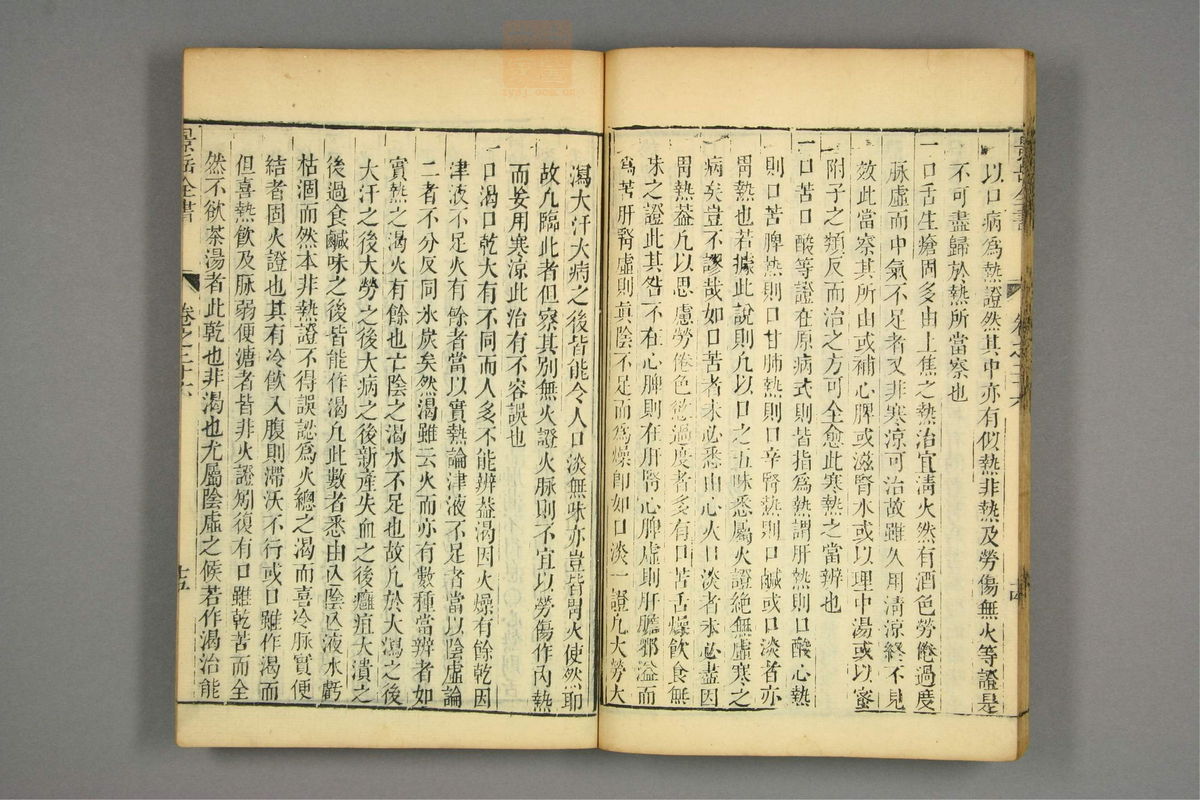 以口病爲熱證然其中亦有似熱非熱及勞傷無火等證是
不可盡歸於熱所當察也
一口舌生瘡固多由上焦之熱治宜淸火然有酒色勞倦過度
脉虛而中氣不足者又非寒涼可治故雖久用淸涼終不見
效此當察其所由或補心脾或滋腎水或以理中湯或以蜜
附子之類反而治之方可全愈此寒熱之當辨也
一口苦口酸等證在原病式則皆指爲熱謂肝熱則口酸心熱
則口苦脾熱則口甘肺熱則口辛腎熱則口鹹或口淡者亦
胃熱也若據此說則凡以口之五味悉屬火證絶無虛寒之
病矣豈不謬哉如口苦者未必悉由心火口淡者未必盡因
胃熱葢凡以思慮勞倦色慾過度者多有口苦舌燥飲食無
味之證此其咎不在心脾則在肝腎心脾虛則肝膽邪溢而
爲苦肝腎虛則眞陰不足而爲燥卽如口淡一證凡大勞大
瀉大汗大病之後皆能令人口淡無味亦豈皆胃火使然耶
故凡臨此者但察其別無火證火脉則不宜以勞傷作內熱
而妄用寒涼此治有不容誤也
一口渴口乾大有不同而人多不能辨葢渴因火燥有餘乾因
津液不足火有餘者當以實熱論津液不足者當以陰虛論
二者不分反同氷炭矣然渴雖云火而亦有數種當辨者如
實熱之渴火有餘也亡陰之渴水不足也故凡於大瀉之後
大汗之後大勞之後大病之後新產失血之後癰疽大潰之
後過食鹹味之後皆能作渴凡此數者悉由亾陰亾液水虧
枯涸而然本非熱證不得誤認爲火總之渴而喜冷脉實便
結者固火證也其有冷飲入腹則滯沃不行或口雖作渴而
但喜熱飲及脉弱便溏者皆非火證矧復有口雖乾苦而全
然不欲茶湯者此乾也非渴也尤屬陰虛之候若作渴治能
景岳全書
卷之二十六
十五
景岳全書
卷之二十六
十四